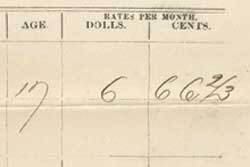 RATES PER MONTH.
AGE. DOLLS. CENTS.
17 6 66 2/3